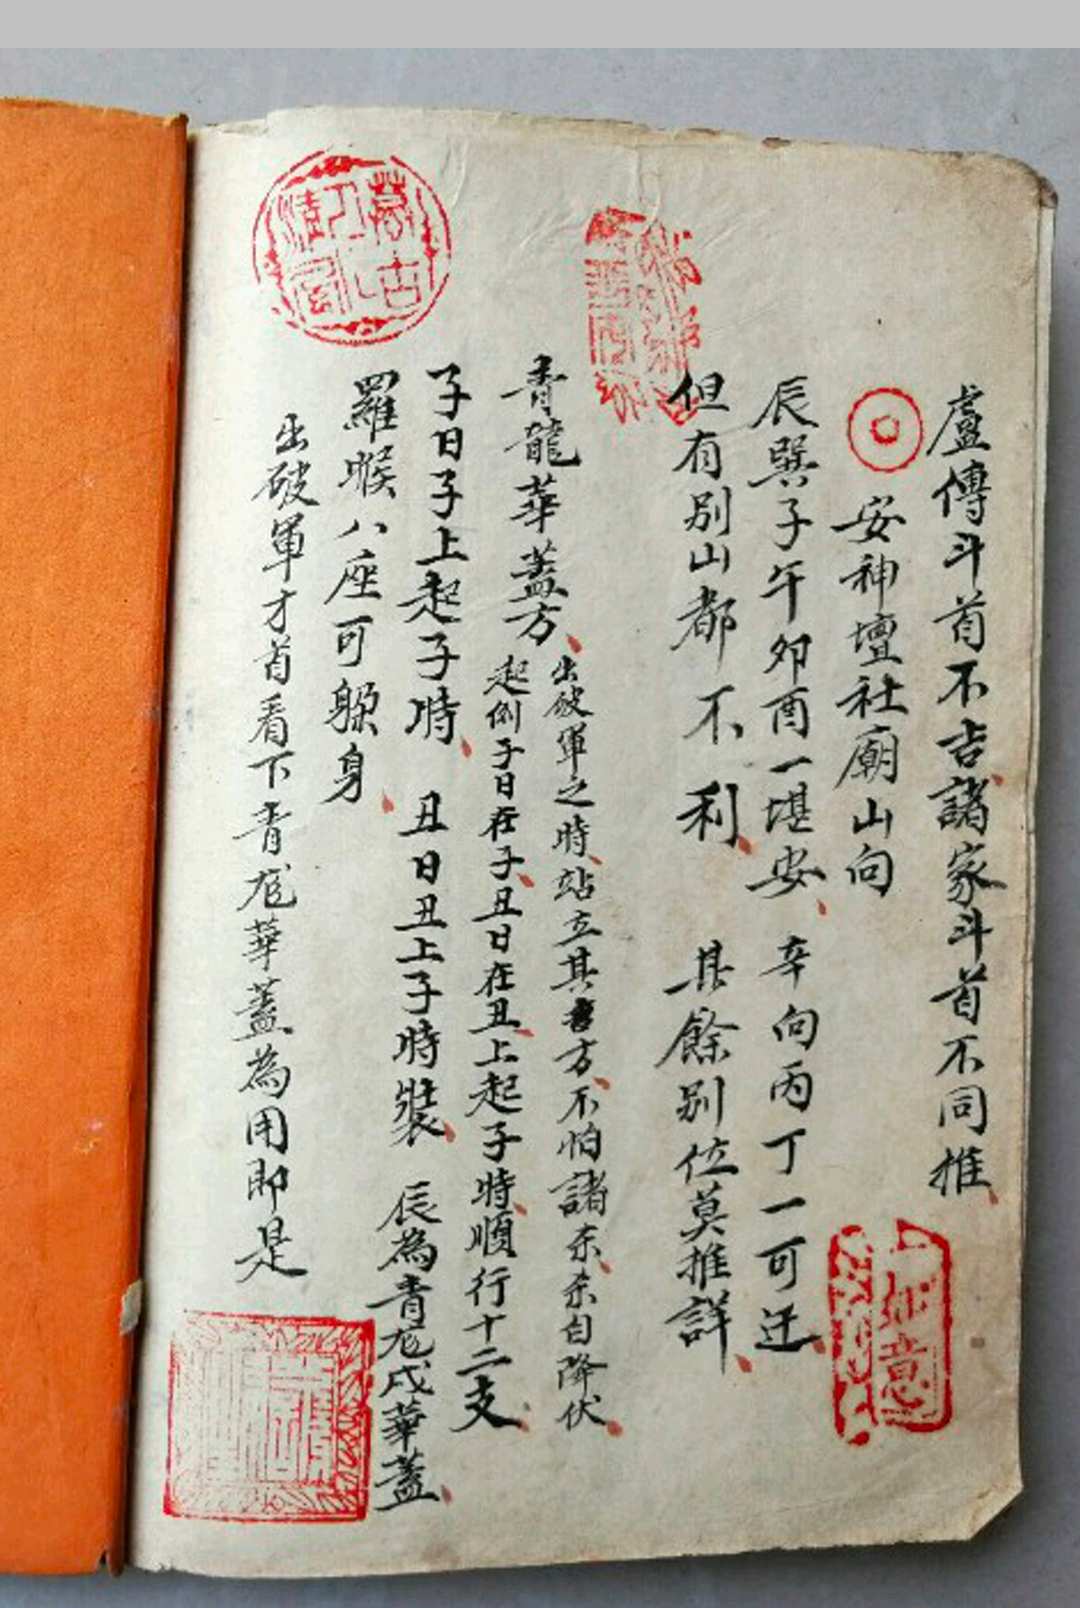 盧傳斗首不吉諸家斗首不同推
安神壇社廟山向
辰巽子午卯酉一堪安 辛向丙丁一可迁
但有別山都不利 其餘別位莫推詳
青龍華蓋方
出破軍之時站立其方不怕諸杀杀自降伏
起例子日在子丑日在丑上起子時順行十二支
子日子上起子時 丑日丑上子時裝 辰為青龙戌華蓋
羅睺八座可躲身
出破軍才首看下青龙華蓋為用即是
如意